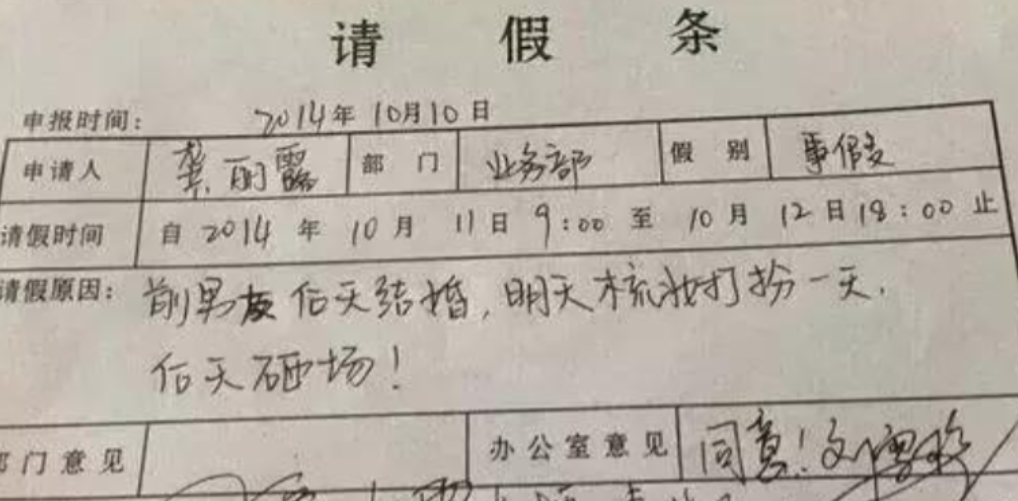 请假条
申报时间: 2014年10月10日
申请人 龚丽露 部门 业务部 假别 事假
请假时间 自2014年10月11日9:00至10月12日18:00止
请假原因: 前男友后天结婚,明天梳妆打扮一天.
后天砸场!
部门意见 办公室意见 同意!